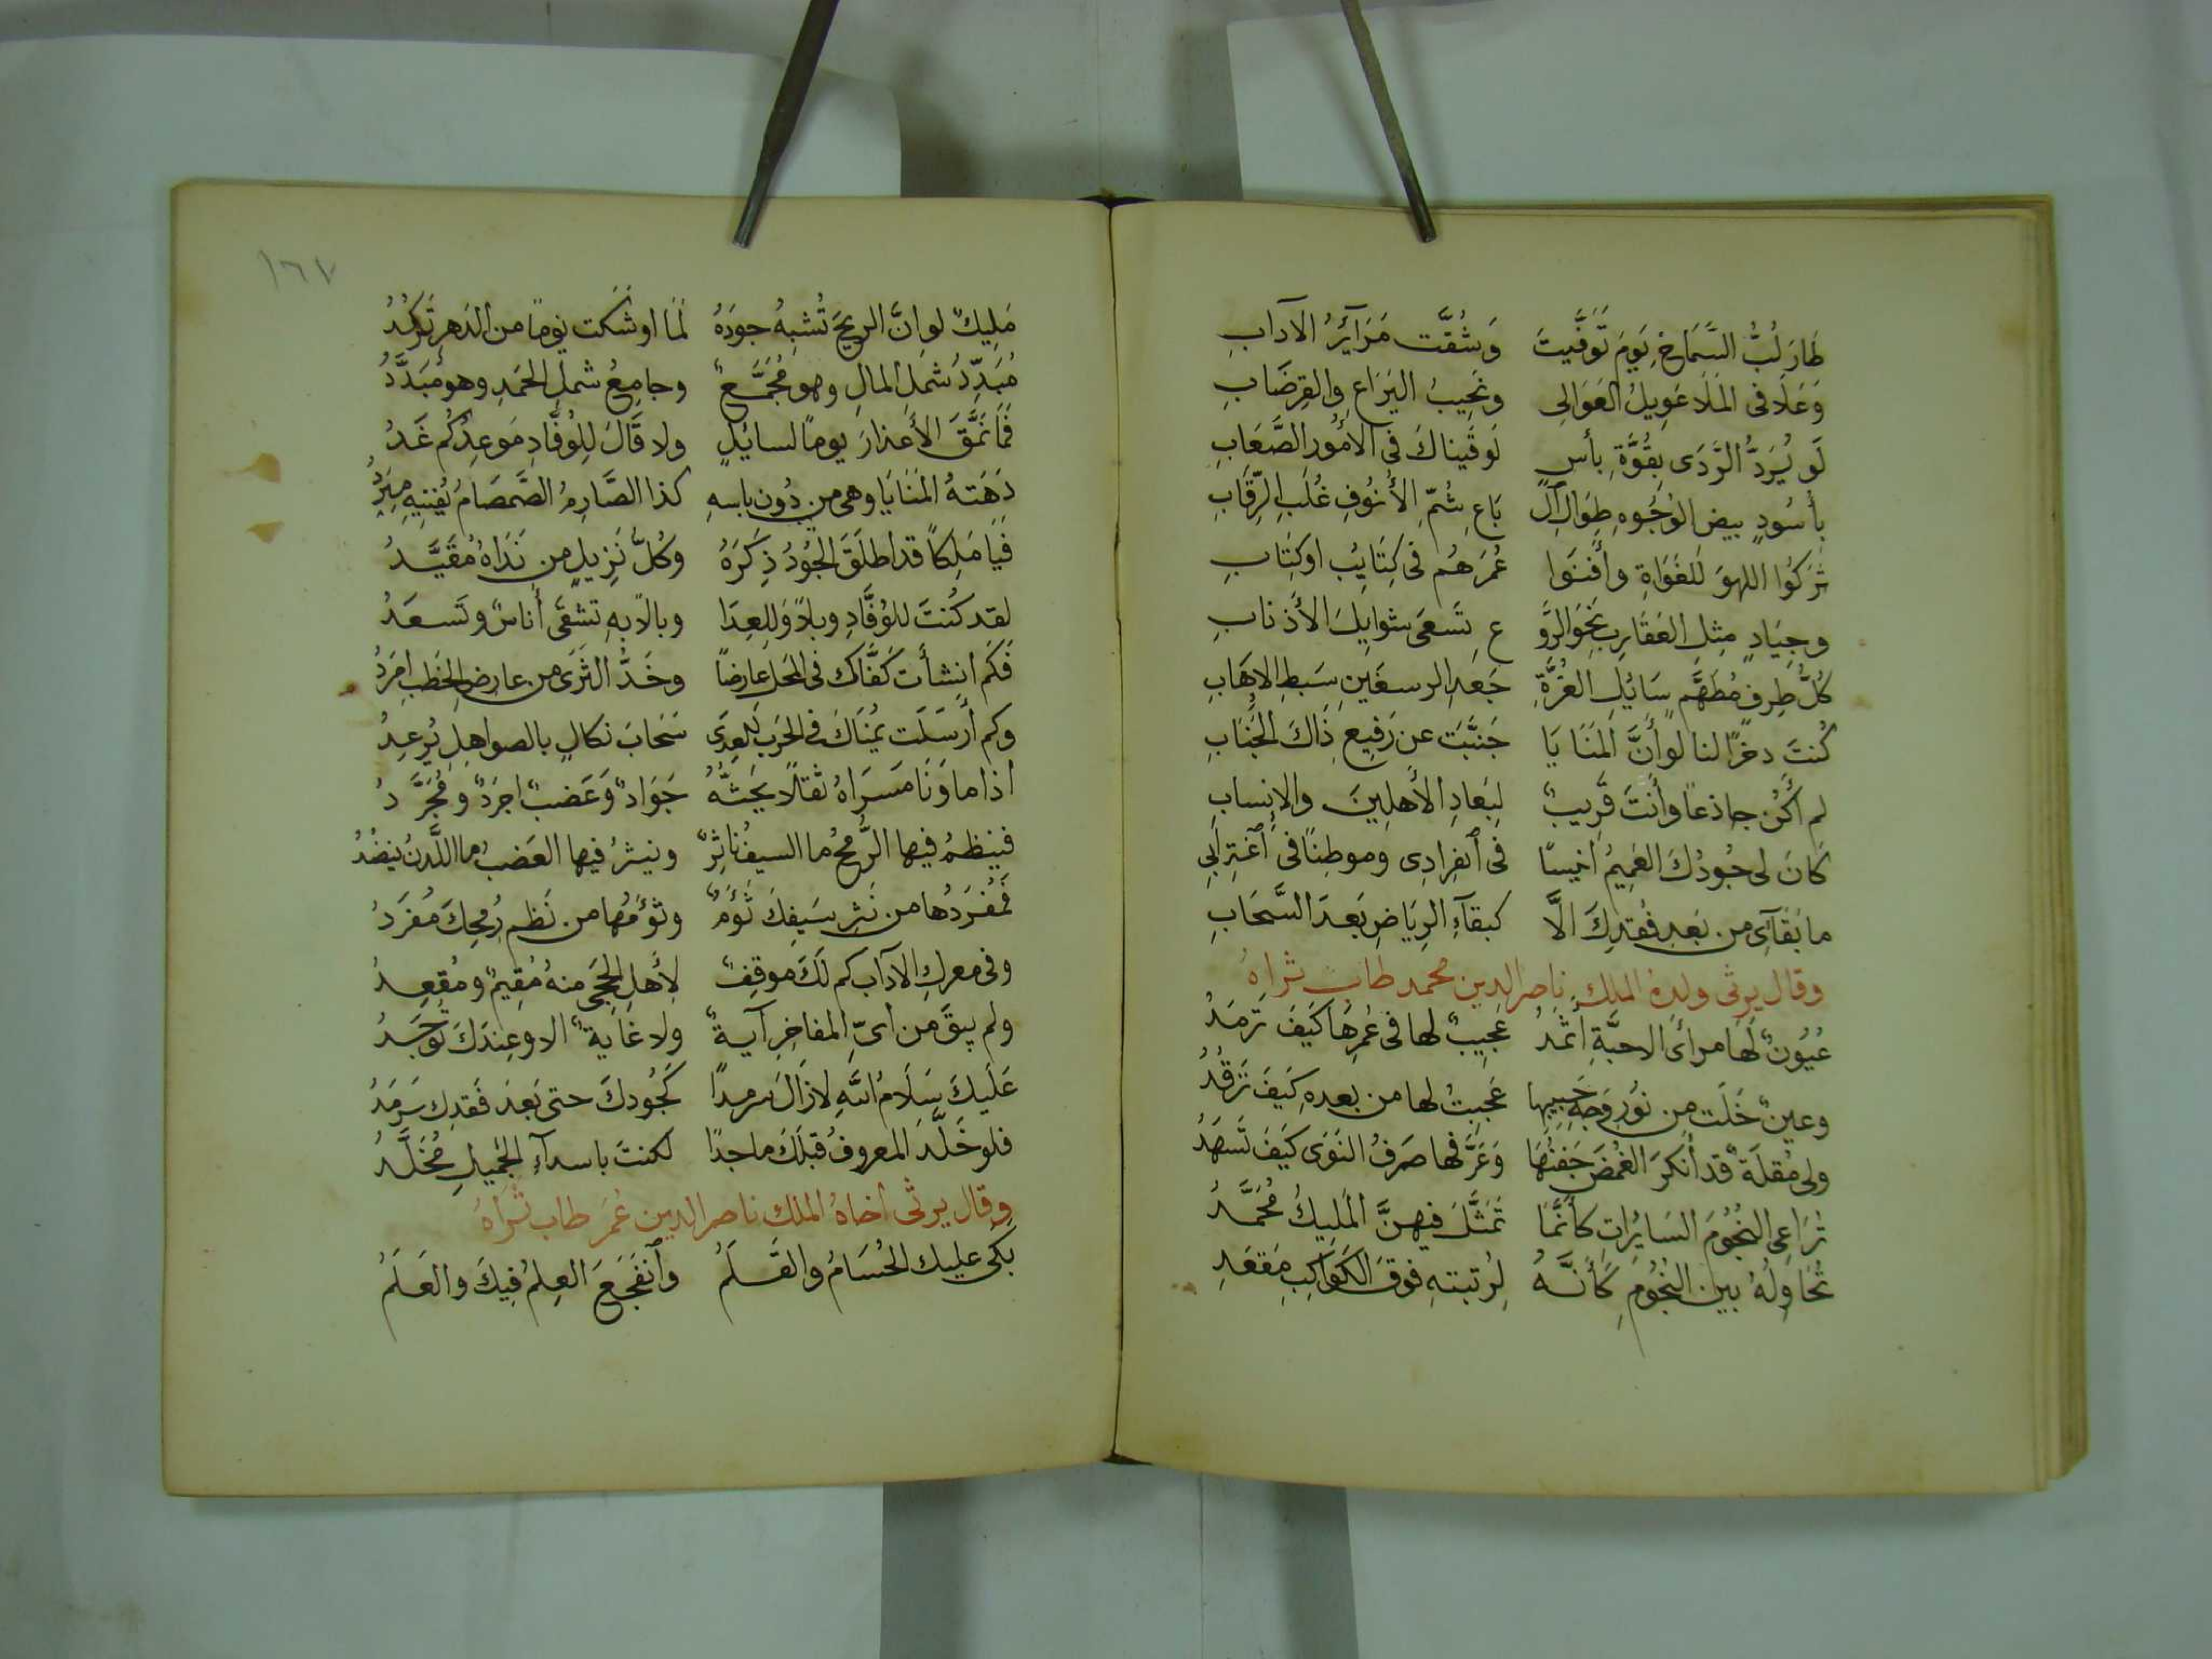 طَارَ لُبُّ السَّمَاخِ يَومَ تَوَفَّيتَ وَشُقَّت مَرَآئِرُ الآدابِ
وَعَلَا فى المَلَا عَوِيلُ العَوَالِى ونَحِيبُ اليَرَاعِ والقِرضَابِ
لَو يُرَدُّ الرَّدَى بِقُوَّةِ بأسٍ لَوَقَيناكَ فى الأمُورِ الصَّعَابِ
بأُسُودٍ بيضِ الوُجُوهِ طِوَالِ آل بَاعِ شُمِّ الأُنُوفِ غُلبِ الرِّقَابِ
تَرَكُوا اللهوَ لِلغُوَاةِ وأَفنَوا عُمرَهُم فى كَتَايُبٍ اوكِتَابِ
وجِيَادٍ مِثلِ العَقَارِبِ نَحوَ الرَّو عِ تَسعَى شوايِلَ الأَذنابِ
كُلُّ طِرفٍ مُطَهَّمٍ سَائِلِ الغُرَّةِ جَعدِ الرسغَينِ سَبطِ الاِهَابِ
كُنتَ دخرًا لنا لَو أَنَّ المَنَايَا جَنَّبَت عن رَفِيعِ ذَاكَ الجَنَابِ
لم أكُن جاذعًا وأنتَ قَرِيبٌ لِبَعادِ الأهلِينَ والانِسابِ
كَانَ لى جُودُكَ العَمِيمُ انيسًا فى اَنفِرادِى وموطِنًا فى اَغتِرَابِى
ما بَقَآئى من بَعدِ فَقدِكَ الَّا كبقآءِ الرِيَاضِ بَعدَ السَّحَابِ
وقال يرثى ولده الملك ناصر الدين محمد طاب ثراه
عُيُونٌ لَهَا مرأَى الاحبَّةِ أثمَدُ عَجِيبٌ لها فى عُمرِهَا كَيفَ تَرمَدُ
وعينٌ خَلَت مِن نُورِ وَجهِ حَبِيبِهَا عَجِبتُ لها من بعدهِ كَيفَ تَرقُدُ
ولى مُقلَةٌ قد أنكَرَ الغُمضَ جَفنُهَا وَعَرَّفَها صَرفُ النَوَى كَيفَ تَسهَدُ
تُرَاعِى النُجُومَ السَايُرَاتِ كأَنَّمَا تَمَثَّلَ فيهنَّ المَلِيكُ مُحَمَّدُ
تُحَاوِلُهُ بين النُجُومِ كَأَنَّهُ لِرُتبتهِ فوقَ الكَوَاكِبِ مَقعَدِ
١٦٧
مَلِيكٌ لو انَّ الريحَ تُشبِهُ جودَهُ لَمَا اوشَكَت يَومًا من الدَهرِ تَركُدُ
مُبَدِّدُ شملِ المالِ وهو مُجَمَّعٌ وجامِعُ شملِ الحَمدِ وهو مُبَدَّدُ
فَمَا نَمَّقَ الأعذارَ يومًا لسائِلٍ ولا قَالَ لِلوُفَّادِ مَوعِدُكُم غَدُ
دَهَتهُ المَنَايَا وهى من دُونِ باسهِ كذا الصَّارِمُ الصَّمصَامُ يُفنيهِ مِبرَدُ
فَيَا مَلِكًا قد اطلَقَ الجُودُ ذِكرَهُ وكُلُّ نَزِيلٍ من نَدَاهُ مُقَيَّدُ
لقد كُنتَ للوُفَّادِ وبلًا وَلِلعِدَا وبالًا بهِ تشقَى أُناسٌ وتَسعَدُ
فَكَم انشأت كَفَّاكَ فى المَحلِ عارضًا وخَدُّ الثَرَى من عارضِ الخَطبِ امرَدُ
وكم أرسَلَت يُمنَاكَ فى الحَربِ لِلعِدَى سَحَابَ نكالٍ بالصواهلِ يُرعِدُ
اذا ما وَنَا مَسرَاهُ ثقلًا يَحثُّهُ جَوَادٌ وَعَضبٌ اجرَدٌ ومُجَرَّدُ
فينظمُ فيها الرُّمحُ ما السيفُ ناثِرٌ وينثرُ فيها العَضبُ ما اللَّدنُ ينضُدُ
فَمُفرَدُها من نَثرِ سَيفِكَ تُؤمٌ وتؤمُها من نَظمِ رُمحِكَ مُفرَدُ
وفى معركِ الآدابِ كم لَكَ موقِفٌ لأهلِ الحِجَى منهُ مُقِيمٌ ومُقعِدُ
ولم يبقَ من أىِّ المفاخرِ آيةٌ ولا غايةٌ الا وعِندَكَ تُوجَدُ
عَلَيكَ سَلَامُ اللّٰهِ لا زالَ سرمدًا كَجُودِكَ حتى بَعدَ فَقدِكَ سَرمَدُ
فلو خَلَّدَ المعروفُ قبلَكَ ماجدًا لكنتَ باسدآءِ الجَميلِ مُخَلَّدُ
وقال يرثى اخاهُ الملك ناصر الدين عُمَر طاب ثَرَاهُ
بكى عليك الحُسَامُ والقَلَمُ وأنفَجَعَ العِلمُ فِيكَ والعَلَمُ